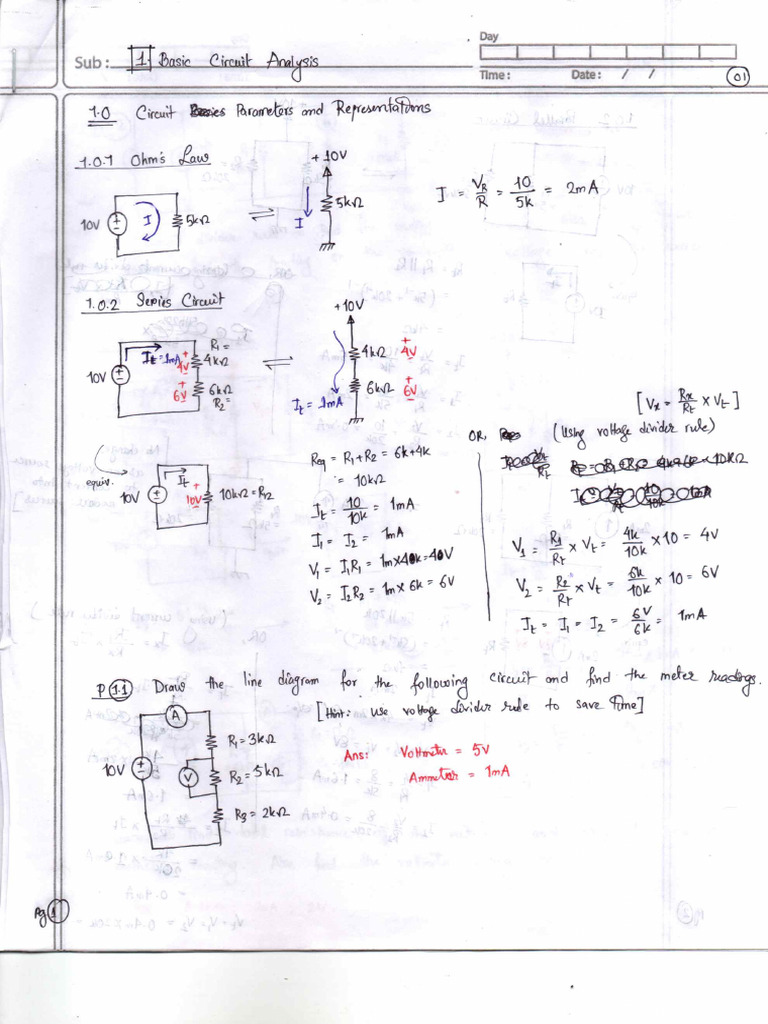 Day
Sub: 1. Basic Circuit Analysis
Time: Date: / / 01
1.0 Circuit Parameters and Representations
1.0.1 Ohm's Law
10V I 5kΩ ⇌ +10V 5kΩ I
I = V_R/R = 10/5k = 2mA
1.0.2 Series Circuit
10V I_t = 1mA R1 = 4kΩ + 4V 6kΩ R2 = + 6V
⇌ +10V 4kΩ + 4V 6kΩ + 6V I_t = 1mA
equiv. 10V I_t + 10V 10kΩ = R12
Req = R1 + R2 = 6k+4k
= 10kΩ
I_t = 10/10k = 1mA
I1 = I2 = 1mA
V1 = I1R1 = 1m×4k = 4V
V2 = I2R2 = 1m×6k = 6V
[Vx = Rx/Rt × Vt]
OR, (Using voltage divider rule)
V1 = R1/Rt × Vt = 4k/10k × 10 = 4V
V2 = R2/Rt × Vt = 6k/10k × 10 = 6V
I_t = I1 = I2 = 6V/6k = 1mA
P 1.1 Draw the line diagram for the following circuit and find the meter readings.
[Hint: Use voltage divider rule to save time]
10V A R1 = 3kΩ V R2 = 5kΩ R3 = 2kΩ
Ans: Voltmeter = 5V
Ammeter = 1mA
Pg 1